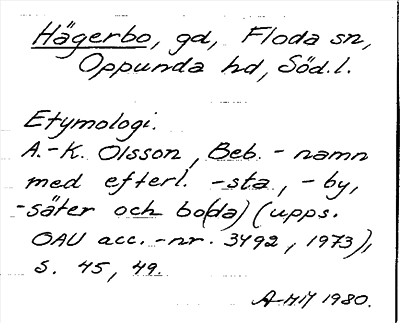 Hägerbo, gd, Floda sn,
Oppunda hd, Söd.l.
Etymologi.
A.-K. Olsson, Beb.-namn
med efterl. -sta, -by,
-säter och bo(da) (upps.
OAU acc.-nr. 3492, 1973),
s. 45, 49.
1980.